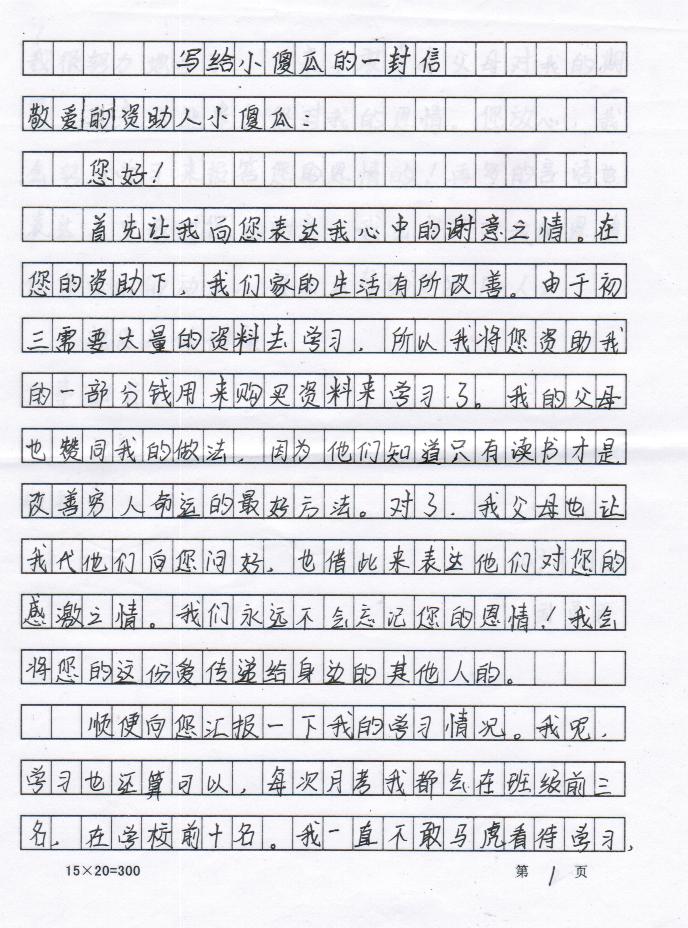 写给小傻瓜的一封信
敬爱的资助人小傻瓜:
您好!
首先让我向您表达我心中的谢意之情。在
您的资助下,我们家的生活有所改善。由于初
三需要大量的资料去学习,所以我将您资助我
的一部分钱用来购买资料来学习了。我的父母
也赞同我的做法,因为他们知道只有读书才是
改善穷人命运的最好方法。对了,我父母也让
我代他们向您问好,也借此来表达他们对您的
感激之情。我们永远不会忘记您的恩情!我会
将您的这份爱传递给身边的其他人的。
顺便向您汇报一下我的学习情况。我呢,
学习也还算可以,每次月考我都会在班级前三
名,在学校前十名。我一直不敢马虎看待学习,
15×20=300 第 1 页